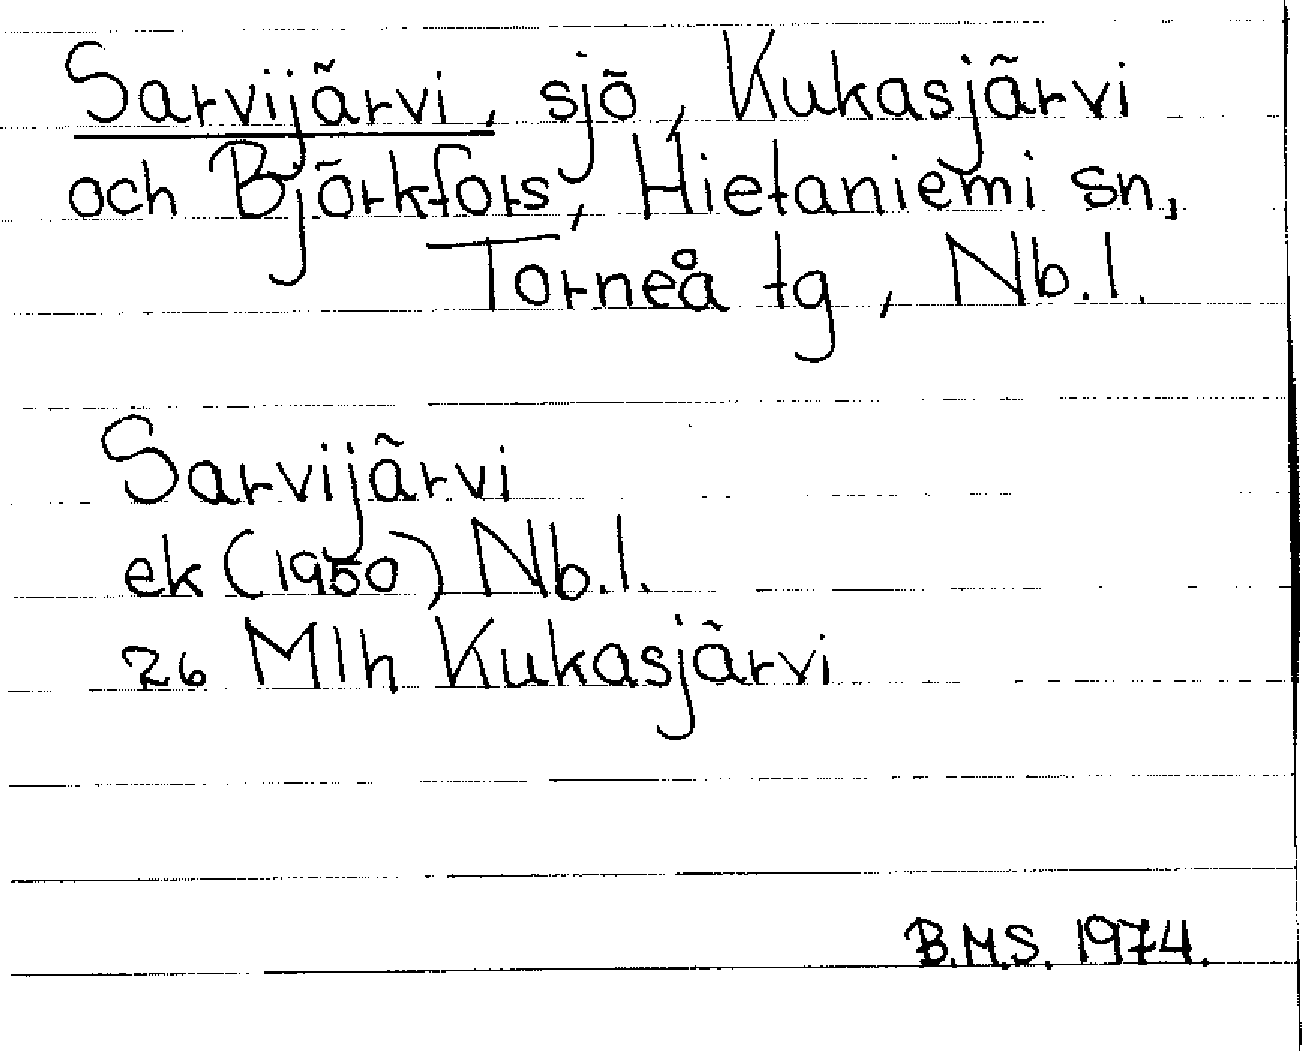 Sarvijärvi, sjö, Kukasjärvi
och Björkfors, Hietaniemi sn,
Torneå tg, Nb. l.
Sarvijärvi
ek (1950) Nb. l.
26 Mlh Kukasjärvi
B.M.S. 1974.